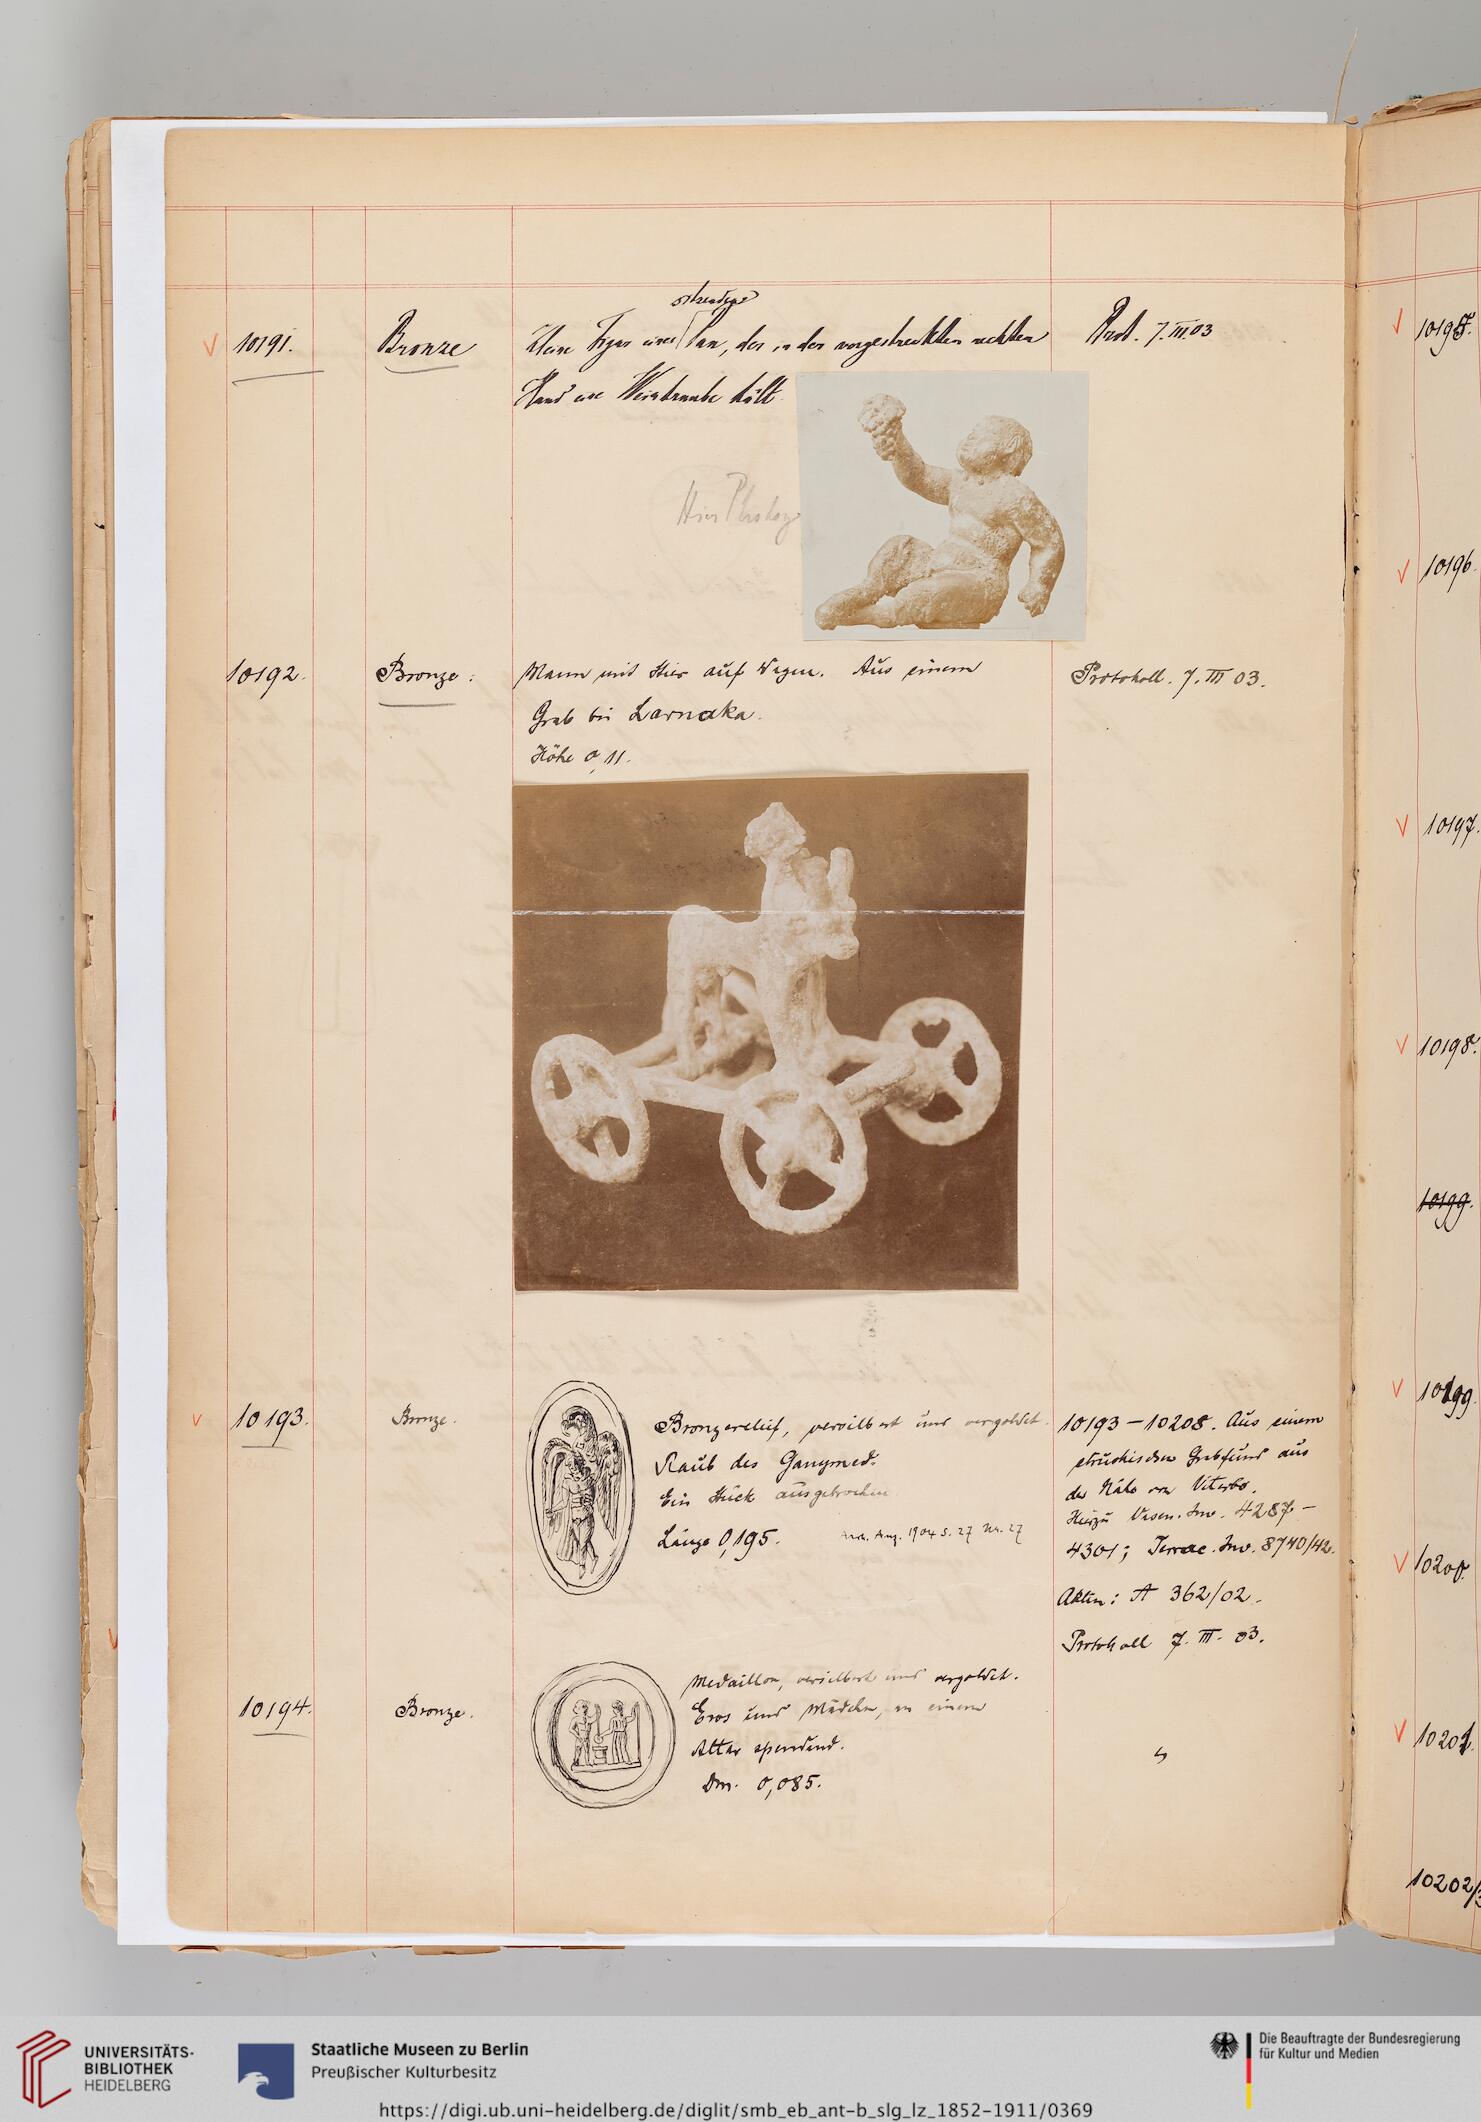 10191.
Bronze
sitzenden
Kleine Figur eines Pan, der in der vorgestreckten rechten
Hand eine Weintraube hält.
Prot. 7.III.03
Hier Photogr
10192.
Bronze:
Mann mit Stier auf Wagen. Aus einem
Grab bei Larnaka.
Höhe 0,11.
Protokoll. 7. III 03.
10193.
Bronze.
Bronzerelief, versilbert und vergoldet.
Raub des Ganymed.
Ein Stück ausgebrochen.
Länge 0,195.
Arch. Anz. 1904 S. 27 Nr. 27
10193–10208. Aus einem
etruskischen Grabfund aus
der Nähe von Viterbo.
Hierzu Vasen. Inv. 4287–
4301; Terrac. Inv. 8740/42.
Akten: A 362/02.
Protokoll 7. III. 03.
10194.
Bronze.
Medaillon, versilbert und vergoldet.
Eros und Mädchen, an einem
Altar spendend.
Dm. 0,085.
10195.
10196.
10197.
10198.
10199.
10199.
10200.
10201.
10202/3
UNIVERSITÄTS-
BIBLIOTHEK
HEIDELBERG
Staatliche Museen zu Berlin
Preußischer Kulturbesitz
Die Beauftragte der Bundesregierung
für Kultur und Medien
https://digi.ub.uni-heidelberg.de/diglit/smb_eb_ant-b_slg_lz_1852-1911/0369